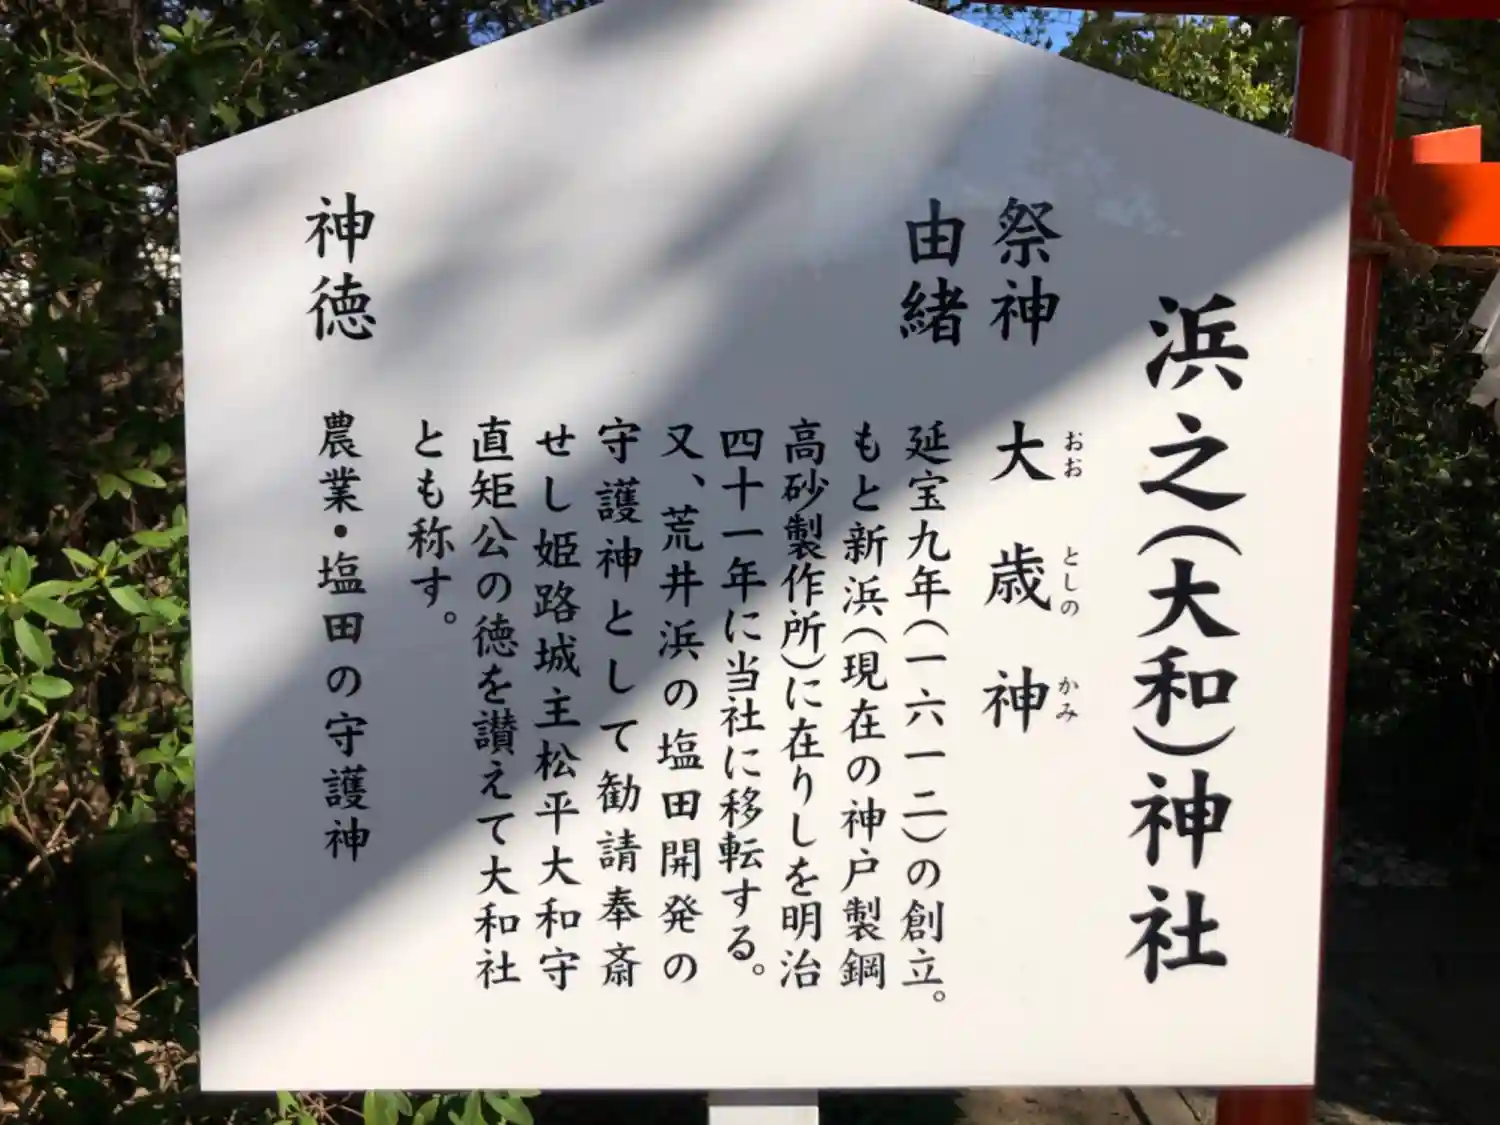 浜之(大和)神社
祭神 大歳神
おお としの かみ
由緒 延宝九年(一六一二)の創立。
もと新浜(現在の神戸製鋼
高砂製作所)に在りしを明治
四十一年に当社に移転する。
又、荒井浜の塩田開発の
守護神として勧請奉斎
せし姫路城主松平大和守
直矩公の徳を讃えて大和社
とも称す。
神徳 農業・塩田の守護神